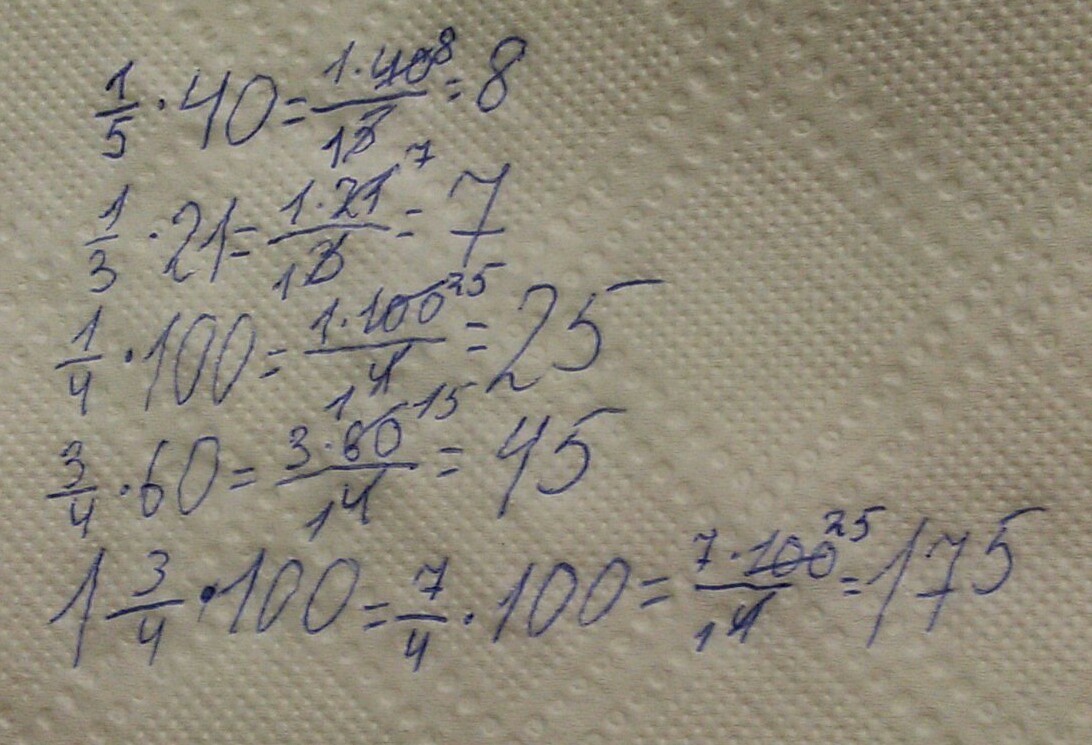 1/5 · 40 = 1·40⁸/₁5 = 8
1/3 · 21 = 1·21⁷/₁3 = 7
1/4 · 100 = 1·100²⁵/₁4 = 25
3/4 · 60 = 3·60¹⁵/₁4 = 45
1 3/4 · 100 = 7/4 · 100 = 7·100²⁵/₁4 = 175